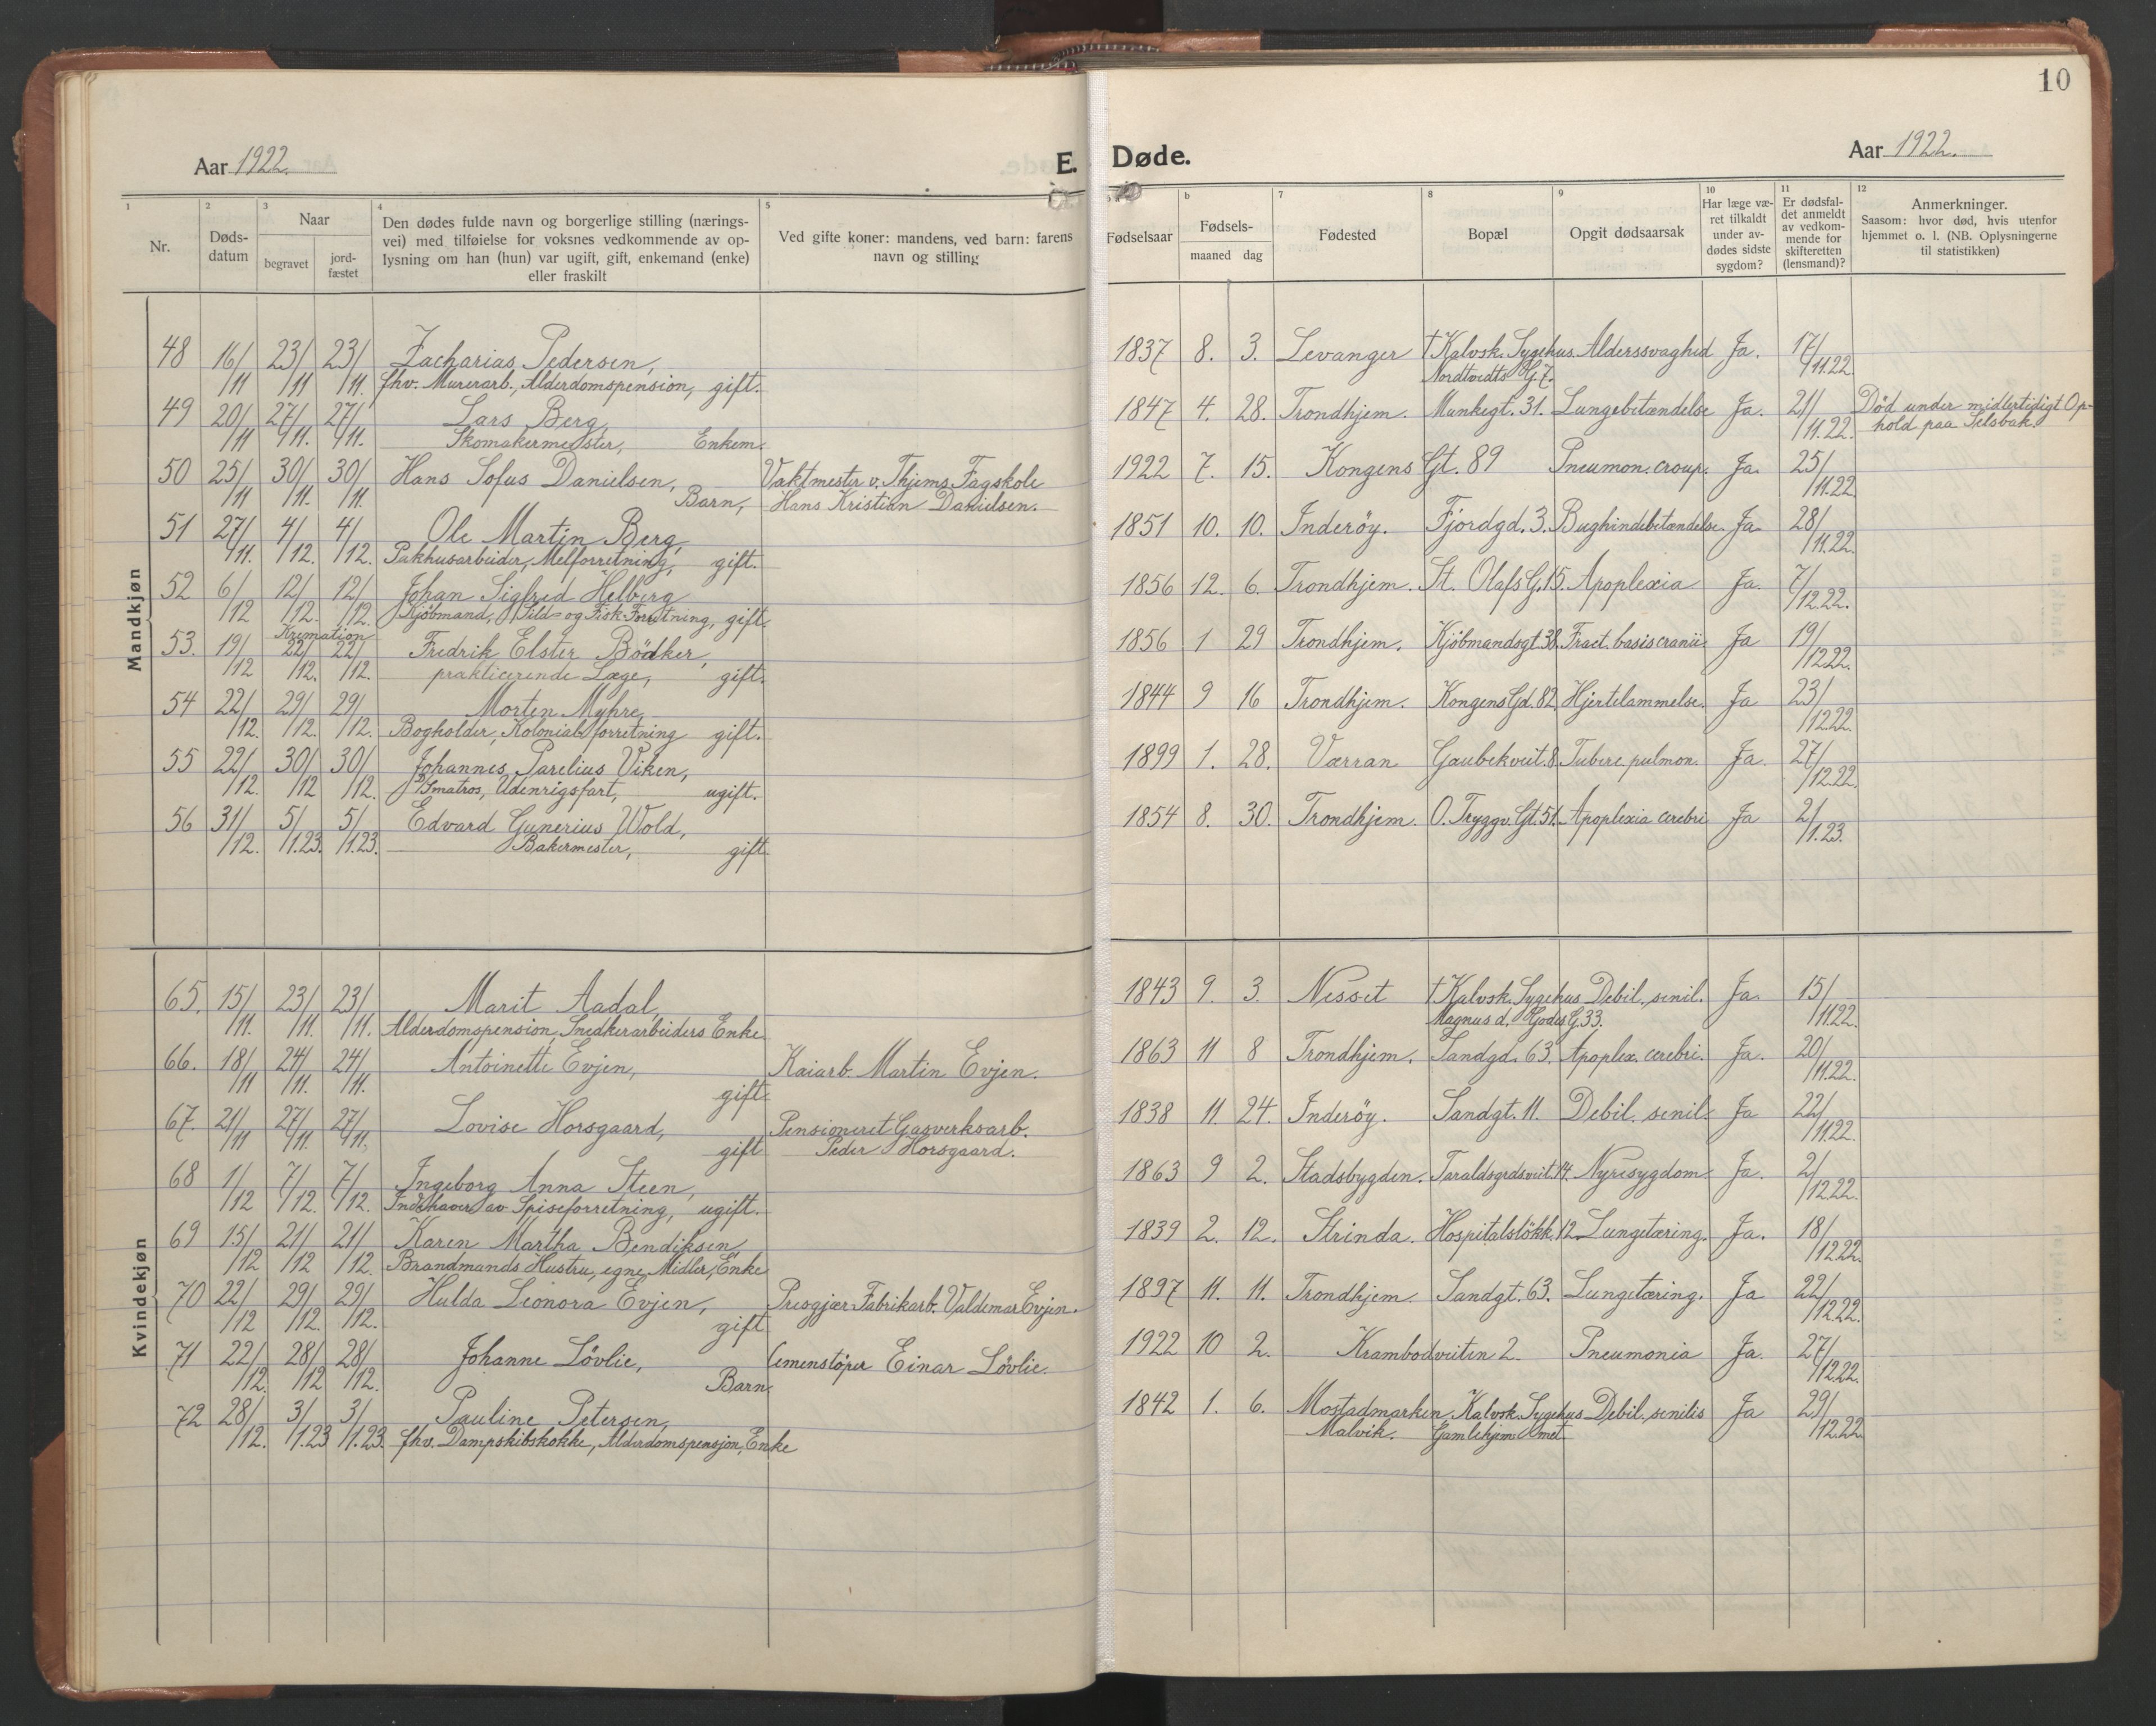 10
Aar 1922.
E. Døde.
Aar 1922.
1 2 3 4 5 b 7 8 9 10 11 12
Nr.
Døds-
datum
Naar
begravet
jord-
fæstet
Den dødes fulde navn og borgerlige stilling (nærings-
vei) med tilføielse for voksnes vedkommende av op-
lysning om han (hun) var ugift, gift, enkemand (enke)
eller fraskilt
Ved gifte koner: mandens, ved barn: farens
navn og stilling
Fødselsaar
Fødsels-
maaned dag
Fødested
Bopæl
Opgit dødsaarsak
Har læge væ-
ret tilkaldt
under av-
dødes sidste
sygdom?
Er dødsfal-
det anmeldt
av vedkom-
mende for
skifteretten
(lensmand)?
Anmerkninger.
Saasom: hvor død, hvis utenfor
hjemmet o. l. (NB. Oplysningerne
til statistikken)
Mandkjøn
48 16/11 23/11 23/11 Zacharias Pedersen, 1837 8. 3. Levanger † Kalvsk. Sygehus. Alderssvaghed Ja. 17/11.22.
fhv. Murerarb., Alderdomspension, gift. Nordtvedts G. 7.
49 20/11 27/11. 27/11. Lars Berg, 1847 4. 28. Trondhjem. Munkegt. 31. Lungebetændelse Ja. 21/11.22. Død under midlertidigt Op-
Skomakermester, Enkem. hold paa Selsbak.
50 25/11 30/11. 30/11. Hans Sofus Danielsen, Vaktmester v. Thjems Fagskole 1922 7. 15. Kongens Gt. 89 Pneumon. croup. Ja. 25/11.22.
Barn, Hans Kristian Danielsen.
51 27/11. 4/12. 4/12. Ole Martin Berg, 1851 10. 10. Inderøy. Fjordgd. 3. Bughindebetændelse. Ja. 28/11.22.
Pakhusarbeider, Melforretning, gift.
52 6/12 12/12. 12/12. Johan Sigfred Helberg 1856 12. 6. Trondhjem. St. Olafs G. 15. Apoplexia Ja. 7/12.22.
Kjöbmand, Sild- og Fisk-Forretning, gift.
Kremation
53. 19/12 22/12. 22/12. Fredrik Elster Bödker, 1856 1 29 Trondhjem. Kjöbmandsgt. 38. Fract. basis cranii. Ja 19/12.22.
prakticerende Læge, gift.
54 22/12. 29/12. 29/12. Morten Myhre, 1844 9 16 Trondhjem. Kongens Gd. 82 Hjertelammelse. Ja 23/12.22.
Bogholder, Kolonialforretning gift.
55 22/12. 30/12 30/12. Johannes Parelius Viken, 1899 1. 28. Værran Gaubekveit. 8. Tuberc. pulmon. Ja. 27/12.22.
matros, Udenrigsfart, ugift.
56 31/12. 5/1.23. 5/1.23. Edvard Gunerius Wold, 1854 8. 30. Trondhjem. O. Tryggv. Gt. 51. Apoplexia cerebri Ja 2/1.23.
Bakermester, gift
Kvindekjøn
65. 15/11. 23/11. 23/11. Marit Aadal, 1843 9. 3. Nesset † Kalvsk. Sygehus Debil. senil. Ja. 15/11.22.
Alderdomspension, Snedkerarbeiders Enke Magnus d. Godes G. 33.
66. 18/11 24/11. 24/11. Antoinette Evjen, Kaiarb. Martin Evjen. 1863 11 8 Trondhjem. Sandgd. 63. Apoplex. cerebri. Ja. 20/11.22.
gift.
67. 21/11 27/11. 27/11. Lovise Horsgaard, Pensioneret Gasverksarb. 1838 11. 24. Inderøy. Sandgt. 11. Debil. senil. Ja 22/11.22.
gift Peder Horsgaard.
68 1/12 7/12. 7/12. Ingeborg Anna Steen, 1863 9 2. Stadsbygden. Taraldsgrdsveit. 14. Nyresygdom Ja. 2/12.22.
Indehaver av Spiseforretning, ugift.
69 15/12 21/12 21/12. Karen Martha Bendiksen, 1839 2. 12. Strinda. Hospitalslökk. 12. Lungetæring. Ja. 18/12.22.
Brandmands Hustru, egne Midler, Enke
70 22/12 29/12. 29/12. Hulda Leonora Evjen, Presgjær Fabrikarb. Valdemar Evjen. 1897 11. 11. Trondhjem. Sandgt. 63. Lungetæring. Ja 22/12.22.
gift
71 22/12. 28/12 28/12. Johanne Lövlie, Cemenstöper Einar Lövlie. 1922 10 2. Krambodveiten 2. Pneumonia Ja. 27/12.22.
Barn.
72 28/12. 3/1.23 3/1.23. Pauline Petersen, 1842 1. 6. Mostadmarken Kalvsk. Sygehus Debil. senilis Ja 29/12.22.
fhv. Dampskibskokke, Alderdomspensjon, Enke Malvik. Gamlehjemmet